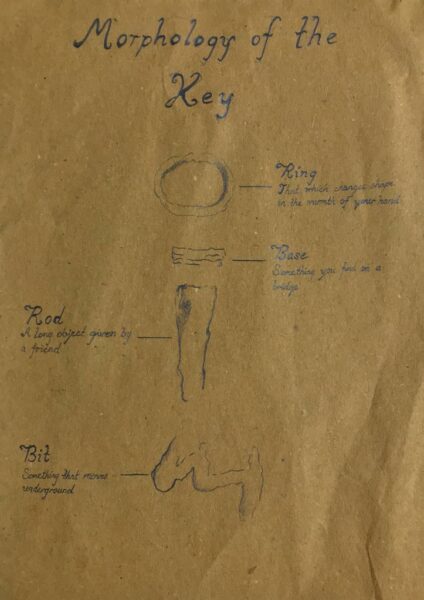 Morphology of the
Key
Ring
That which changes shape
in the warmth of your hand
Base
Something you find on a
bridge
Rod
A long object given by
a friend
Bit
Something that moves
underground